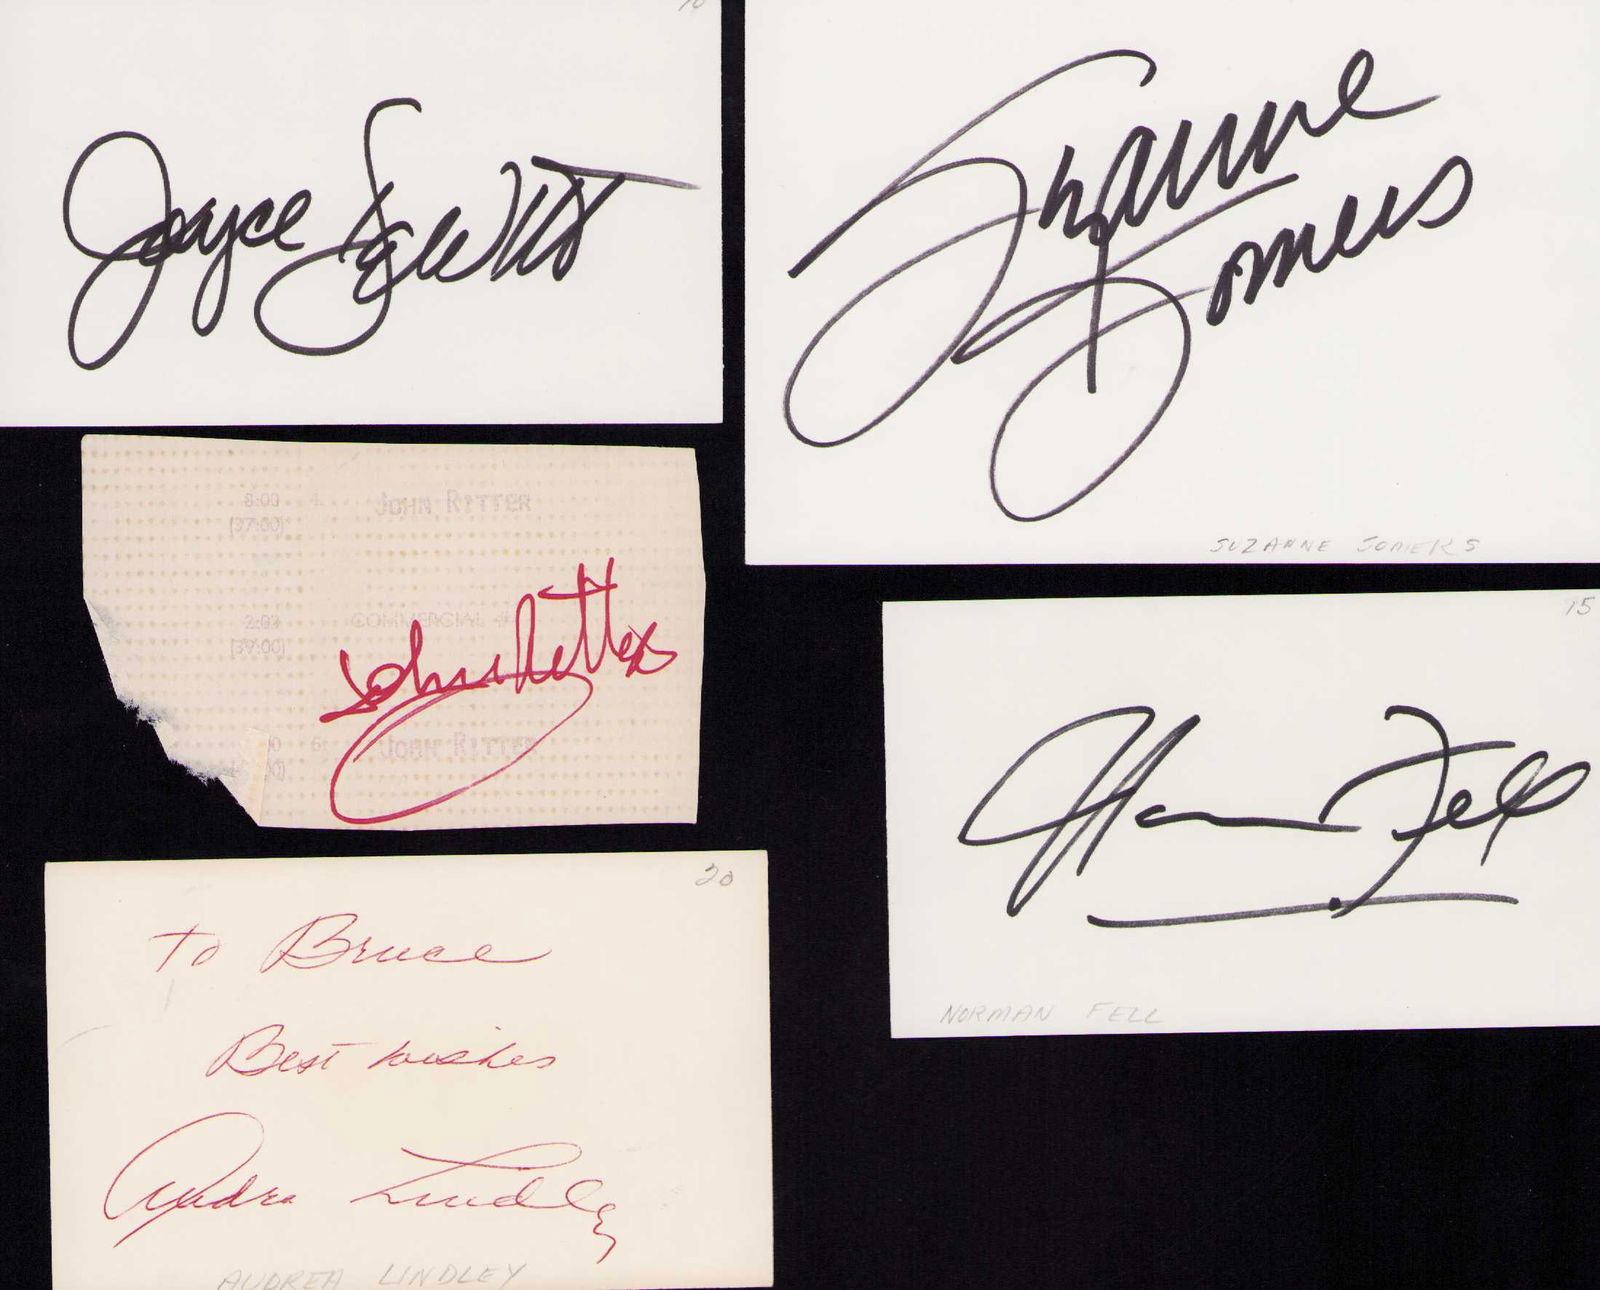 10
Joyce DeWitt
Suzanne
Somers
SUZANNE SOMERS
8:00 4 JOHN RITTER
(37:00)
2:03 COMMERCIAL #4
(39:00)
John Ritter
6 JOHN RITTER
15
Norman Fell
NORMAN FELL
20
To Bruce
Best wishes
Audra Lindley
AUDREA LINDLEY